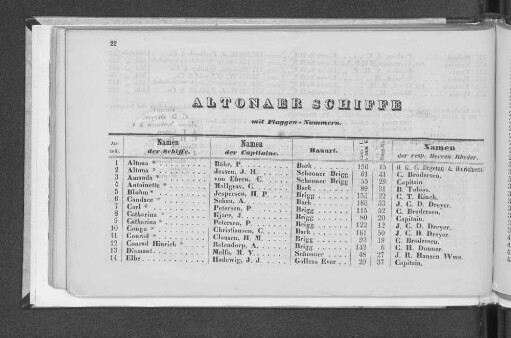 22
ALTONAER SCHIFFE
mit Flaggen-Nummern.
Namen der Schiffe. Namen der Capitaine. Bauart. Namen der resp. Herren Rheder.
1 Altona * Bähr, P. Bark 150 15
2 Altona * Jessen, J. H. Schooner Brigg 61 41 C. Brodersen.
3 Amanda * von Ehren, C. Schooner Brigg 55 29 Capitain
4 Antoinette * Mallgrav, C. Bark 89 31 B. Tobias.
5 Blohm * Jespersen, H. P. Brigg 153 22 C. T. Kinch.
6 Candace * Schau, A. Bark 166 33 J. C. D. Dreyer.
7 Carl * Petersen, P. Brigg 115 52 C. Brodersen.
8 Catharina * Kjaer, J. Brigg 80 20 Capitain.
9 Catharina * Petersen, P. Brigg 122 12 J. C. D. Dreyer.
10 Conga * Christiansen, C. Bark 161 50 J. C. D. Dreyer.
11 Conrad * Clausen, H. M. Brigg 92 19 C. Brodersen.
12 Conrad Hinrich * Belendorp, A. Brigg 142 6 C. H. Donner.
13 Dissmast Melfs, M. V. Schooner 48 27 J. R. Hansen Wwe.
14 Elbe Hadewig, J. J. Galleas Ever 29 37 Capitain.